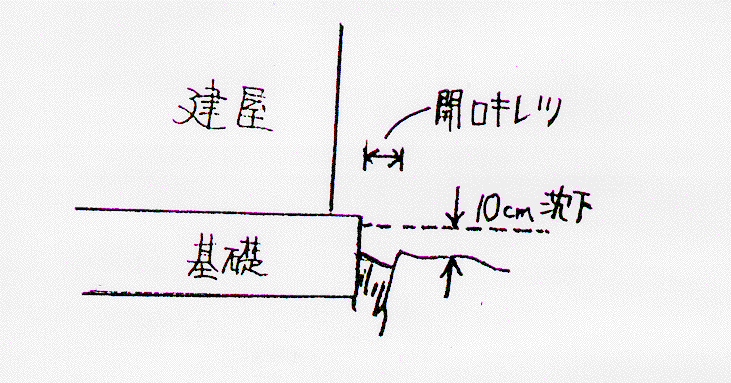 建屋
開口キレツ
10cm沈下
基礎